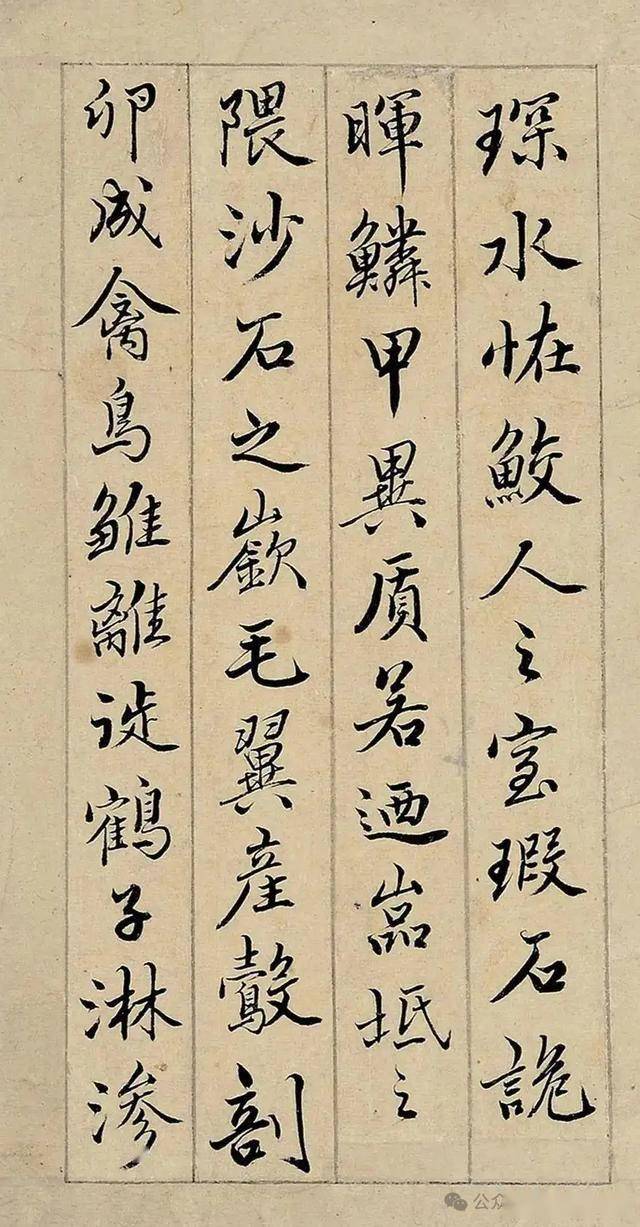 琛水恠鮫人之室瑕石詭
暉鱗甲異質若迺嵓坻之
隈沙石之嶔毛翼產鷇剖
卵成禽鳧雛離鶴子淋滲
公众